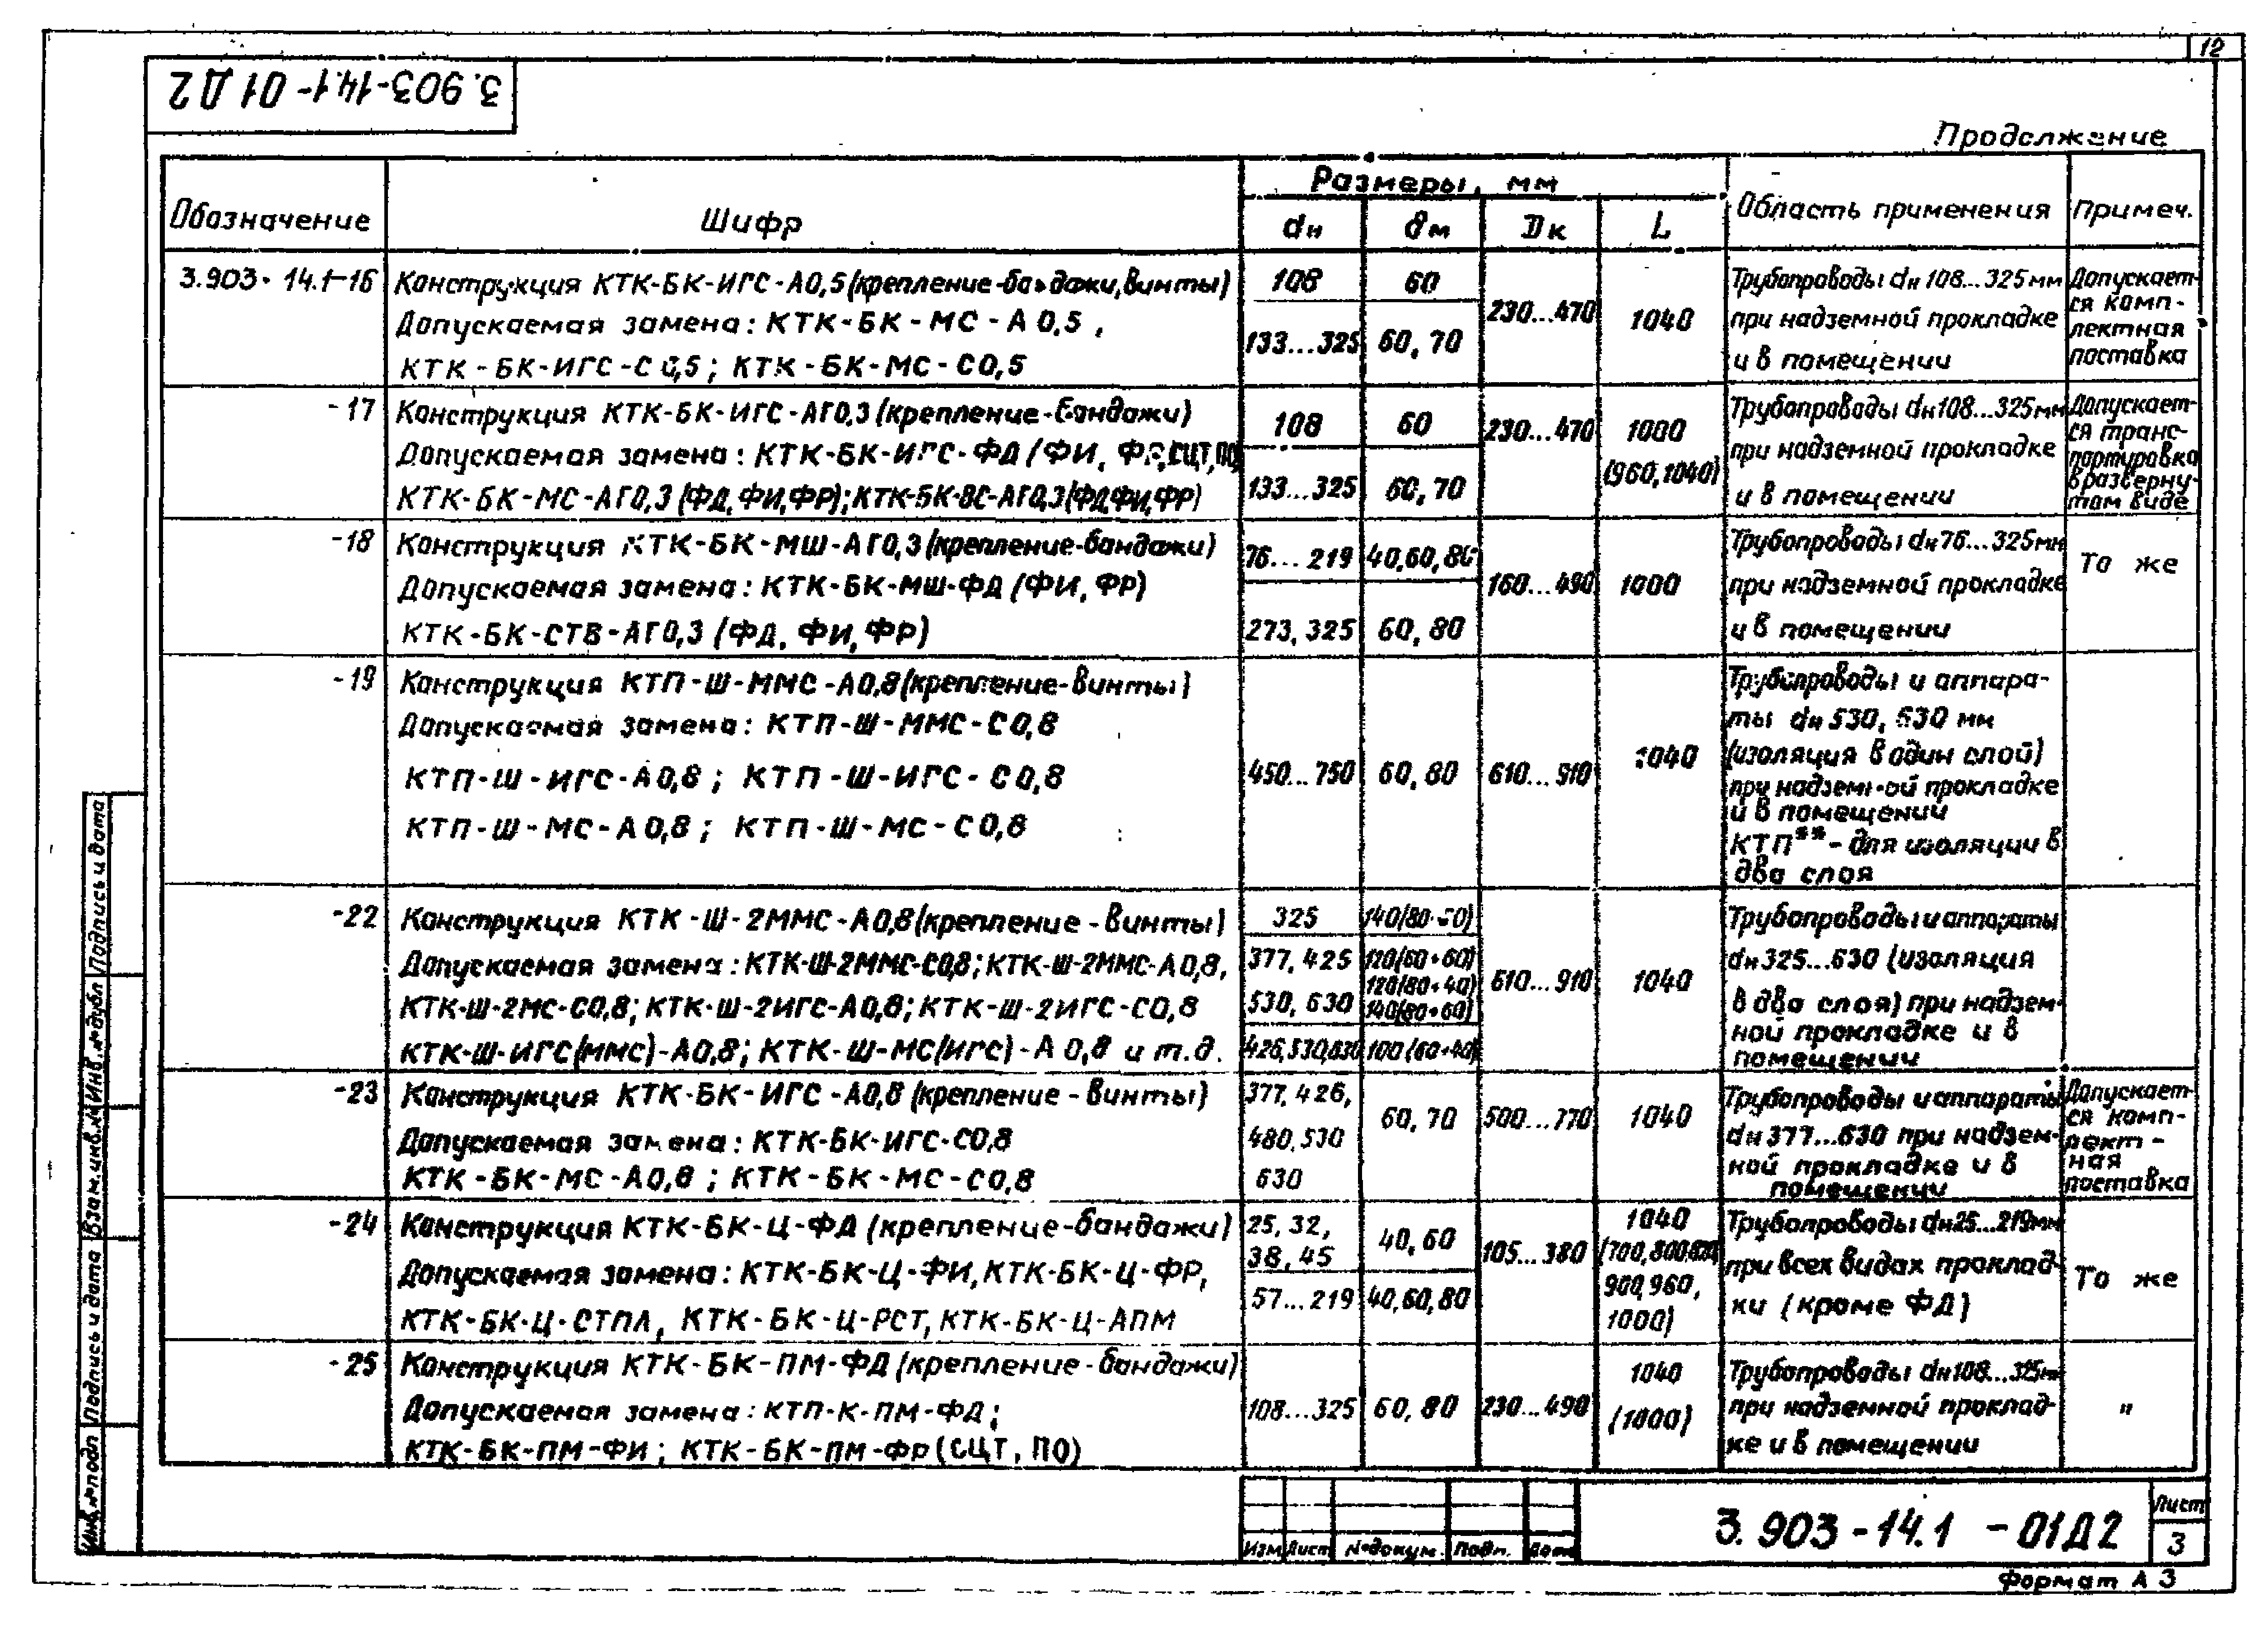 12
3.903-14.1-01Д2
Продолжение
Обозначение
Шифр
Размеры, мм
dн
δм
Dк
L
Область применения
Примеч.
3.903-14.1-16
Конструкция КТК-БК-ИГС-А0,5(крепление-бандажи,винты)
Допускаемая замена: КТК-БК-МС-А0,5,
КТК-БК-ИГС-С0,5; КТК-БК-МС-С0,5
108
60
133...325
60, 70
230...470
1040
Трубопроводы dн 108...325 мм
при надземной прокладке
и в помещении
Допускает-
ся комп-
лектная
поставка
-17
Конструкция КТК-БК-ИГС-АГ0,3(крепление-бандажи)
Допускаемая замена: КТК-БК-ИГС-ФД (ФИ, ФР,СЦТ,ПО)
КТК-БК-МС-АГ0,3(ФД,ФИ,ФР);КТК-БК-ВС-АГ0,3(ФД,ФИ,ФР)
108
60
133...325
60, 70
230...470
1000
(960,1040)
Трубопроводы dн108...325мм
при надземной прокладке
и в помещении
Допускает-
ся транс-
портировка
в разверну-
том виде
-18
Конструкция КТК-БК-МШ-АГ0,3(крепление-бандажи)
Допускаемая замена: КТК-БК-МШ-ФД (ФИ, ФР)
КТК-БК-СТВ-АГ0,3 (ФД, ФИ, ФР)
76...219
40,60,80
273, 325
60, 80
160...490
1000
Трубопроводы dн76...325мм
при надземной прокладке
и в помещении
То же
-19
Конструкция КТП-Ш-ММС-А0,8(крепление-винты)
Допускаемая замена: КТП-Ш-ММС-С0,8
КТП-Ш-ИГС-А0,8; КТП-Ш-ИГС-С0,8
КТП-Ш-МС-А0,8; КТП-Ш-МС-С0,8
450...750
60, 80
610...910
1040
Трубопроводы и аппара-
ты dн 530, 630 мм
(изоляция в один слой)
при надземной прокладке
и в помещении
КТП** - для изоляции в
два слоя
-22
Конструкция КТК-Ш-2ММС-А0,8(крепление-винты)
Допускаемая замена: КТК-Ш-2ММС-С0,8; КТК-Ш-2ММС-А0,8,
КТК-Ш-2МС-С0,8; КТК-Ш-2ИГС-А0,8; КТК-Ш-2ИГС-С0,8
КТК-Ш-ИГС(ММС)-А0,8; КТК-Ш-МС(ИГС)-А0,8 и т.д.
325
140(80+60)
377, 425
530, 630
120(60+60)
120(80+40)
140(80+60)
426,530,630
100(60+40)
610...910
1040
Трубопроводы и аппараты
dн325...630 (изоляция
в два слоя) при надзем-
ной прокладке и в
помещении
-23
Конструкция КТК-БК-ИГС-А0,8 (крепление-винты)
Допускаемая замена: КТК-БК-ИГС-С0,8
КТК-БК-МС-А0,8; КТК-БК-МС-С0,8
377, 426,
480, 530
630
60, 70
500...770
1040
Трубопроводы и аппараты
dн377...630 при надзем-
ной прокладке и в
помещении
Допускает-
ся комп-
лект-
ная
поставка
-24
Конструкция КТК-БК-Ц-ФД (крепление-бандажи)
Допускаемая замена: КТК-БК-Ц-ФИ, КТК-БК-Ц-ФР,
КТК-БК-Ц-СТПЛ, КТК-БК-Ц-РСТ, КТК-БК-Ц-АПМ
25, 32,
38, 45
40, 60
57...219
40,60,80
105...380
1040
(700,800,
900,960,
1000)
Трубопроводы dн25...219мм
при всех видах проклад-
ки (кроме ФД)
То же
-25
Конструкция КТК-БК-ПМ-ФД (крепление-бандажи)
Допускаемая замена: КТП-К-ПМ-ФД;
КТК-БК-ПМ-ФИ; КТК-БК-ПМ-ФР(СЦТ, ПО)
108...325
60, 80
230...490
1040
(1000)
Трубопроводы dн108...325мм
при надземной проклад-
ке и в помещении
"
Инв.№подл
Подпись и дата
Взам.инв.№
Инв.№дубл
Подпись и дата
Изм
Лист
№докум.
Подп.
Дата
3.903-14.1-01Д2
Лист
3
Формат А3